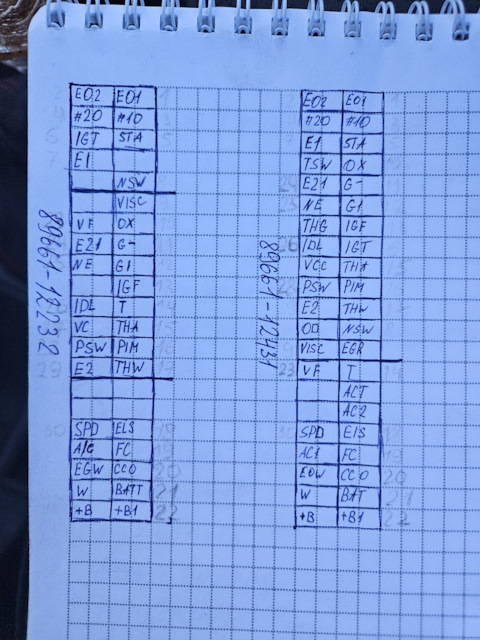 89661-12232
EO2 EO1
#20 #10
IGT STA
E1
NSW
VISC
VF OX
E21 G-
NE G1
IGF
IDL T
VC THA
PSW PIM
E2 THW
SPD ELS
A/C FC
EGW CCO
W BATT
+B +B1
89661-12431
EO2 EO1
#20 #10
E1 STA
TSW OX
E21 G-
NE G1
THG IGF
IDL IGT
VCC THA
PSW PIM
E2 THW
OD NSW
VISC EGR
VF T
ACT
AC2
SPD ElS
AC1 FC
EGW CCO
W BAT
+B +B1